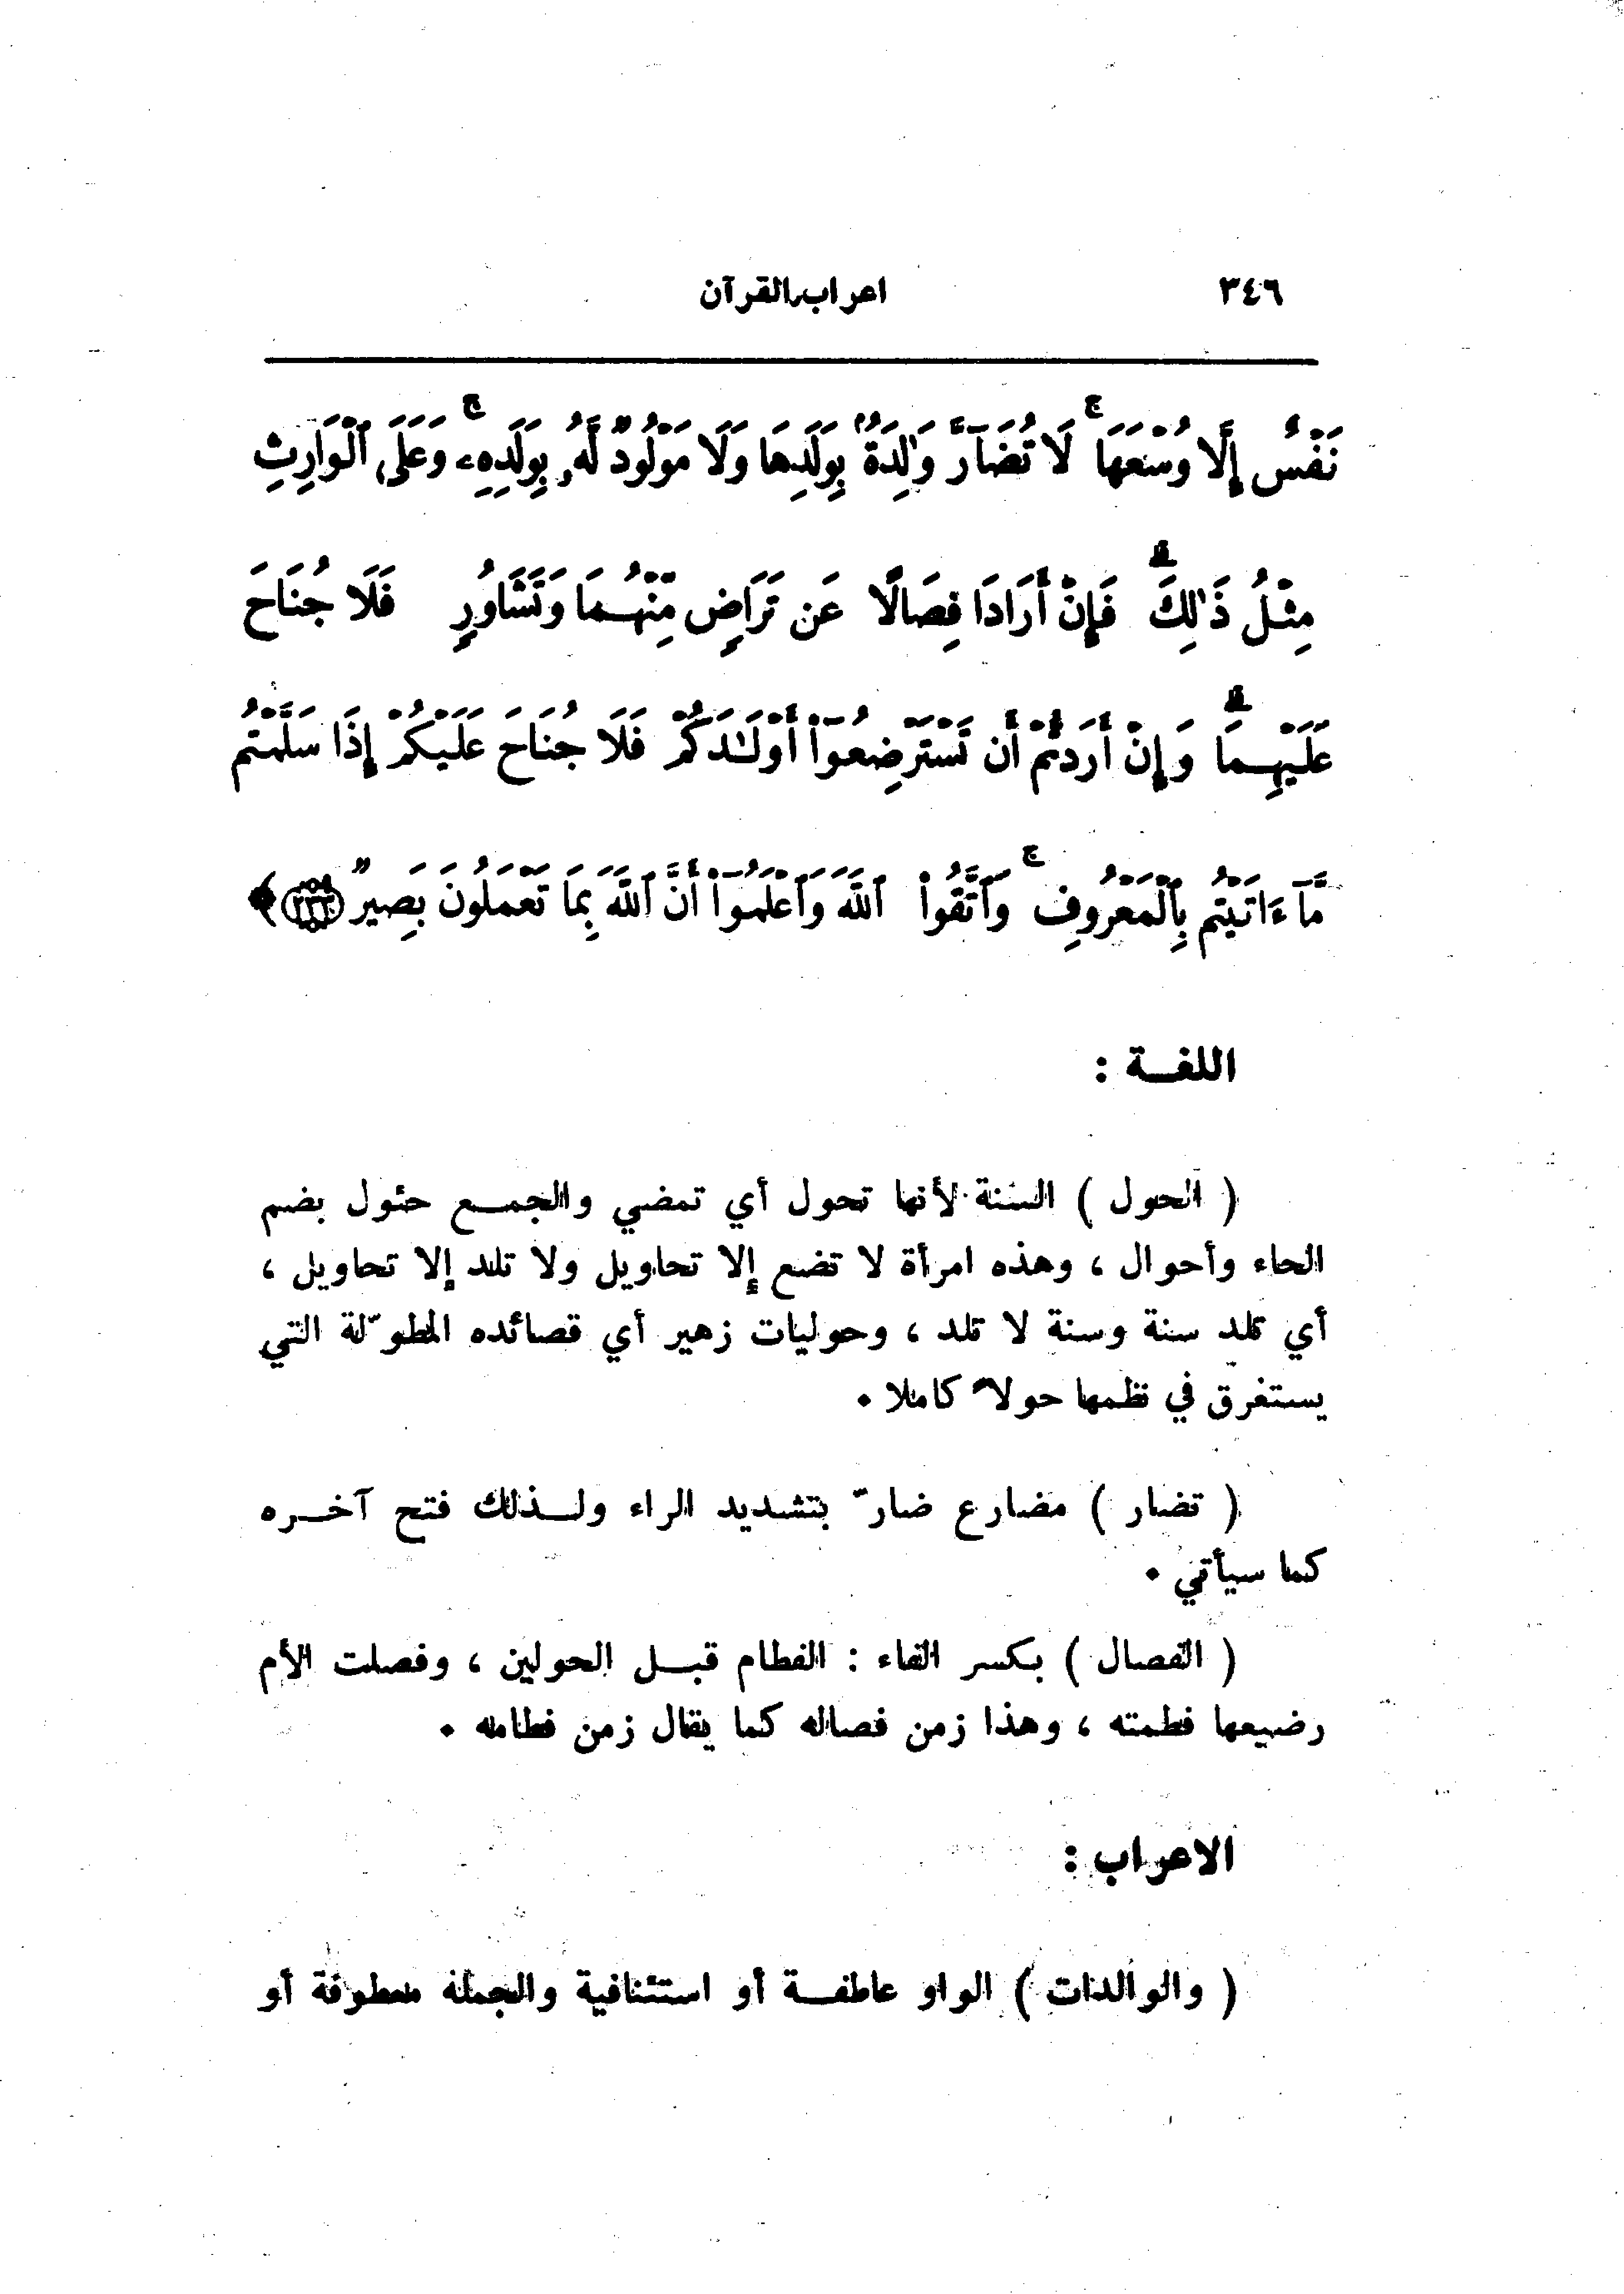 ٣٤٦
اعراب القرآن
نَفْسٌ إِلَّا وُسْعَهَا ۚ لَا تُضَآرَّ وَٰلِدَةٌۢ بِوَلَدِهَا وَلَا مَوْلُودٌ لَّهُۥ بِوَلَدِهِۦ ۚ وَعَلَى ٱلْوَارِثِ
مِثْلُ ذَٰلِكَ ۗ فَإِنْ أَرَادَا فِصَالًا عَن تَرَاضٍ مِّنْهُمَا وَتَشَاوُرٍ فَلَا جُنَاحَ
عَلَيْهِمَا ۗ وَإِنْ أَرَدتُّمْ أَن تَسْتَرْضِعُوٓا۟ أَوْلَٰدَكُمْ فَلَا جُنَاحَ عَلَيْكُمْ إِذَا سَلَّمْتُم
مَّآ ءَاتَيْتُم بِٱلْمَعْرُوفِ ۚ وَٱتَّقُوا۟ ٱللَّهَ وَٱعْلَمُوٓا۟ أَنَّ ٱللَّهَ بِمَا تَعْمَلُونَ بَصِيرٌ ﴿٢٣٣﴾
اللغـة :
( الحول ) السنة لأنها تحول أي تمضي والجمـع حئول بضم
الحاء وأحوال ، وهذه امرأة لا تضع إلا تحاويل ولا تلد إلا تحاويل ،
أي تلد سنة وسنة لا تلد ، وحوليات زهير أي قصائده المطوّلة التي
يستغرق في نظمها حولاً كاملا .
( تضار ) مضارع ضارّ بتشديد الراء ولـذلك فتح آخـره
كما سيأتي .
( الفصال ) بكسر الفاء : الفطام قبـل الحولين ، وفصلت الأم
رضيعها فطمته ، وهذا زمن فصاله كما يقال زمن فطامه .
الاعراب :
( والوالدات ) الواو عاطفـة أو استئنافية والجملة معطوفة أو